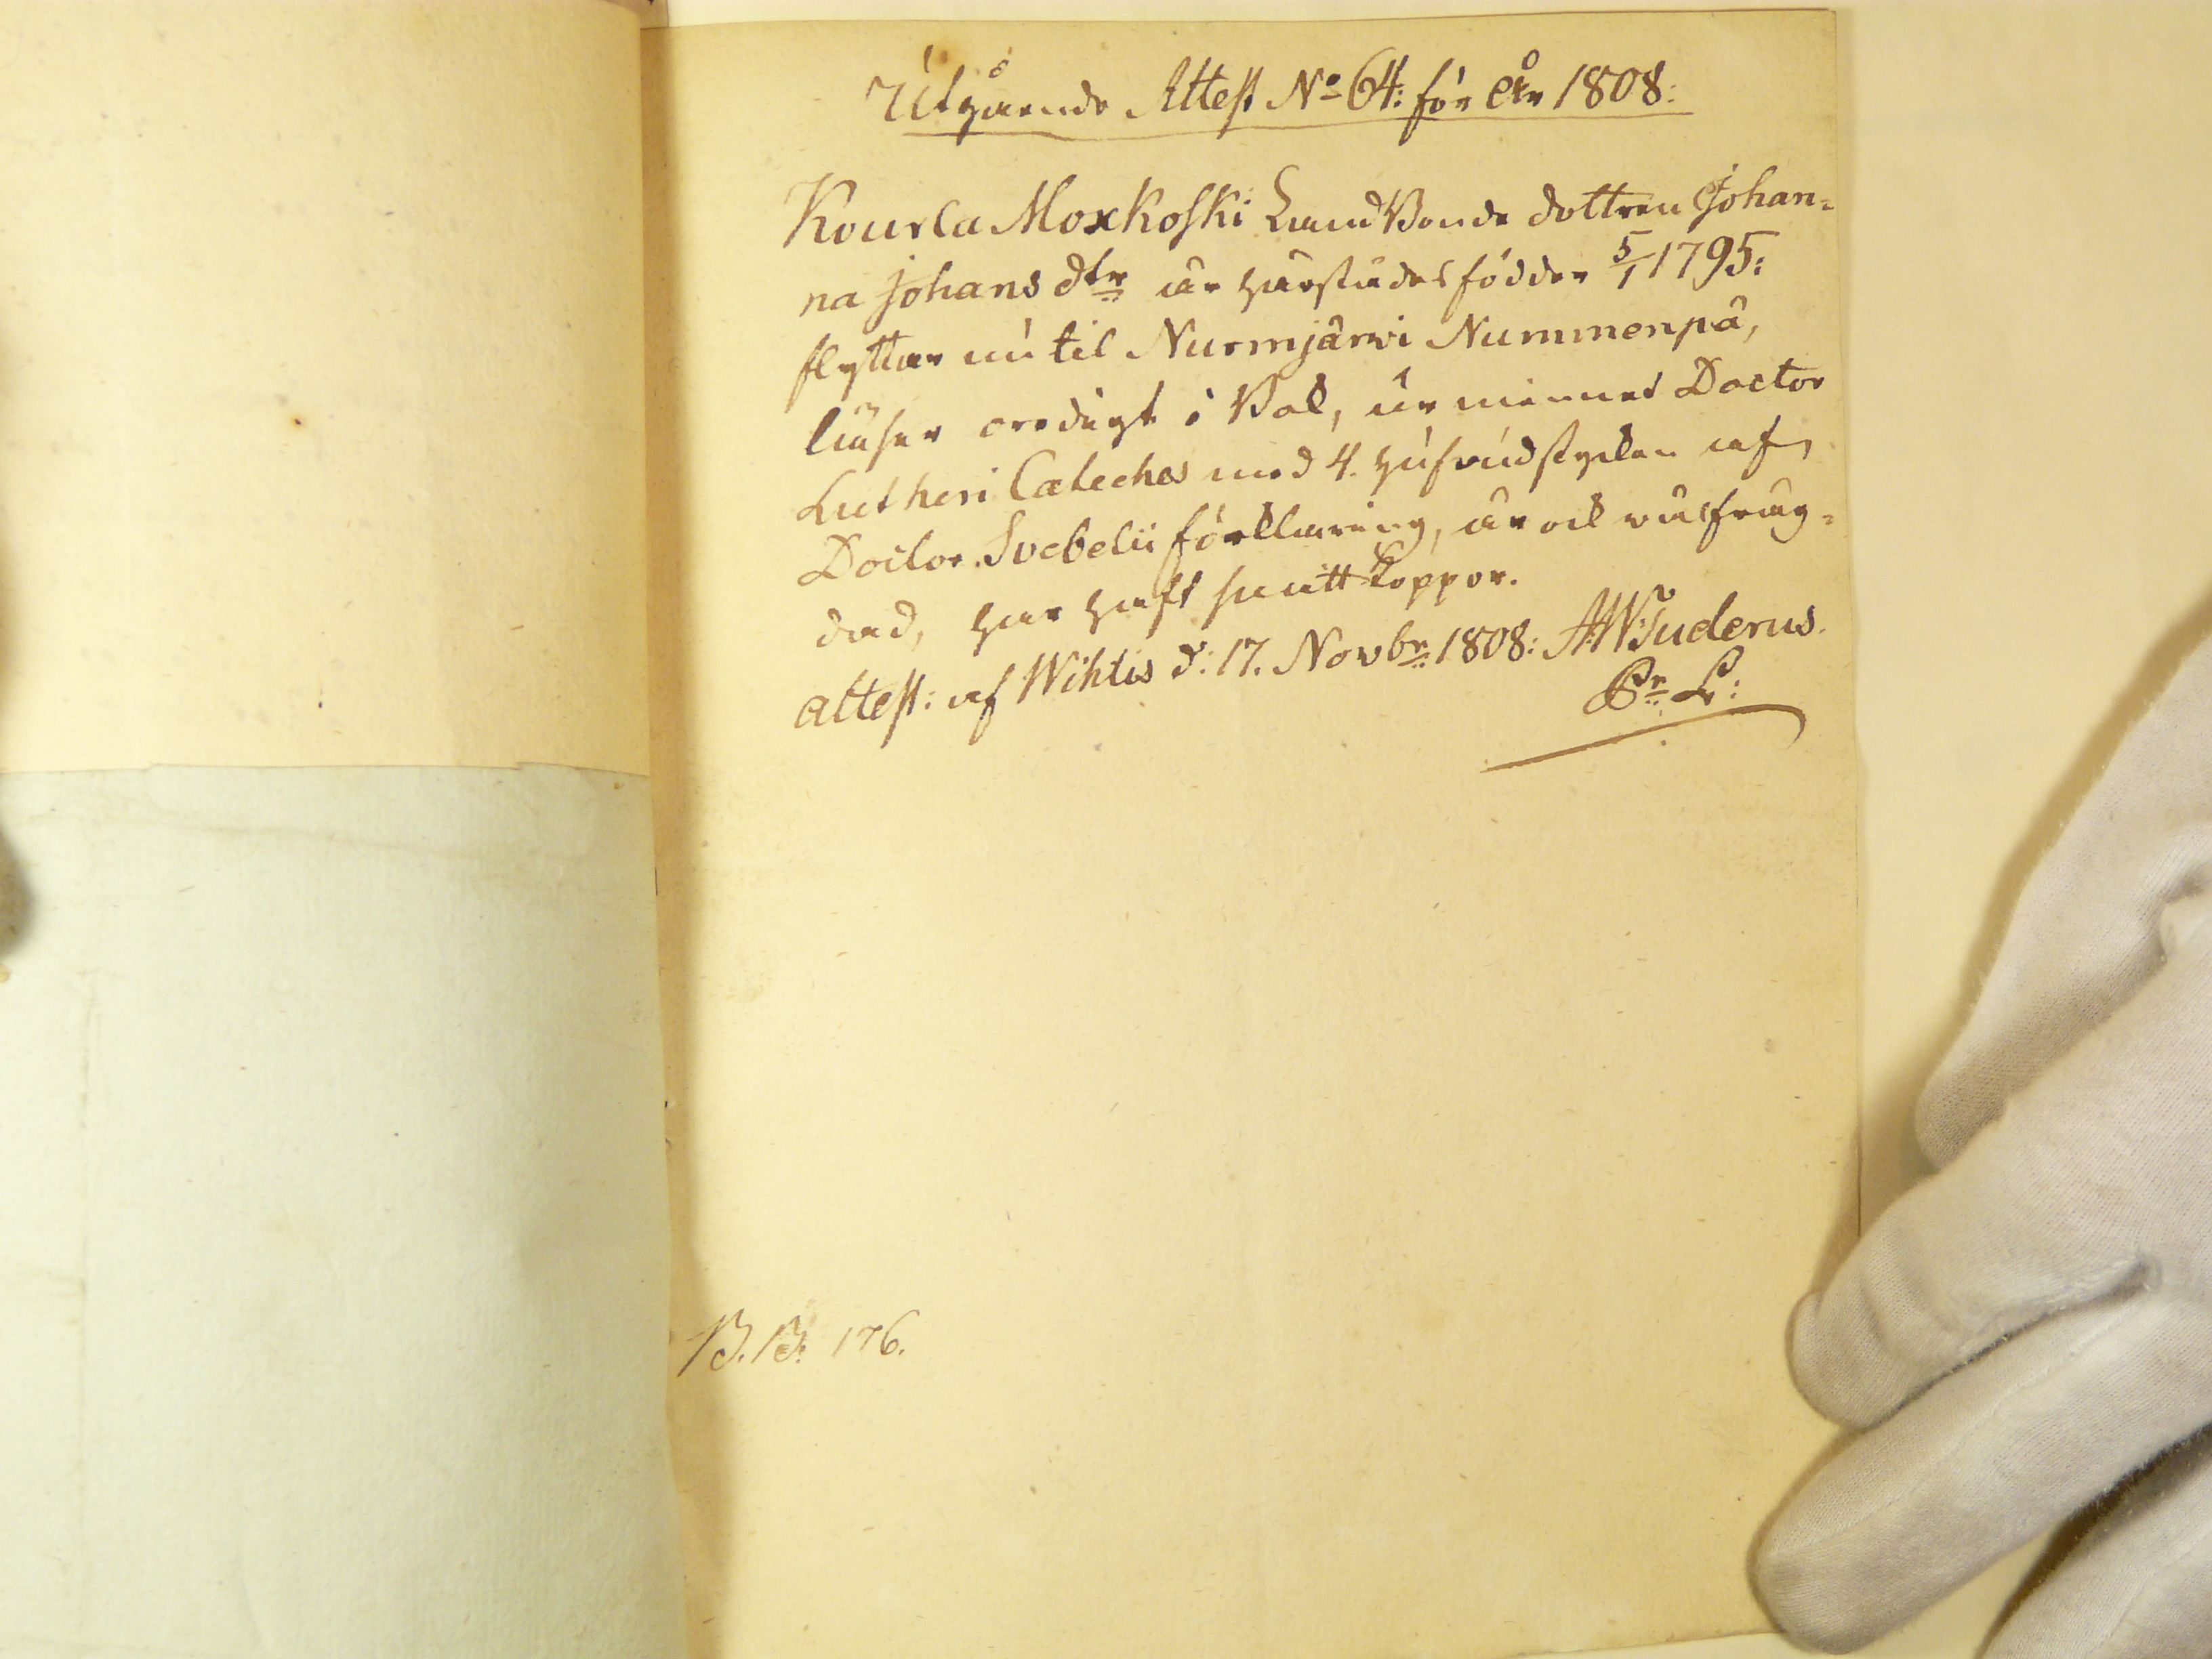 Utgående Attest No 64: för År 1808:
Kourla Moxkoski Land Bonde dottren Johan=
na Johans dtr är härstädes födder 5/1 1795:
flyttar nu til Nurmjärwi Nummenpä,
läser oredigt i Bok, ur minnet Doctor
Lutheri Cateches med 4. hufvudstycken af
Doctor Svebelii förklaring, är ock välfräg=
dad, har haft smittkoppor.
attest: af Wihtis d: 17. Novbr 1808: AWTuderus.
Pr L:
B.B. 176.